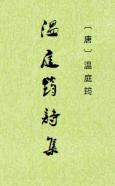 〔唐〕溫庭筠
溫庭筠詩集